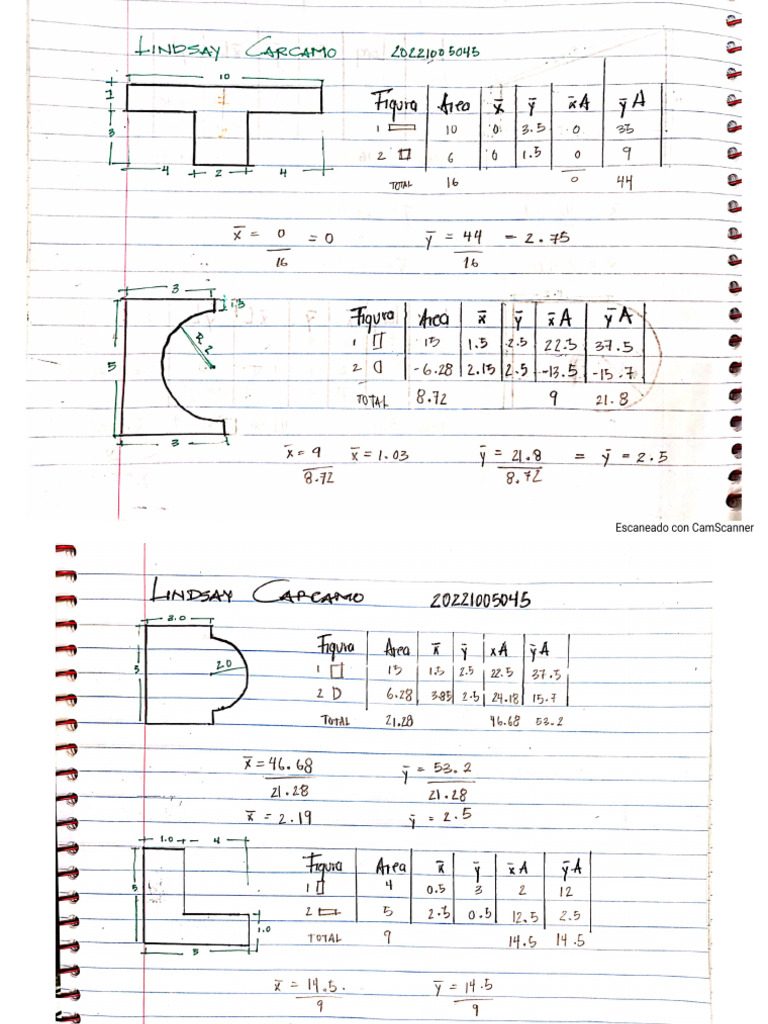 LINDSAY CARCAMO 20221005045
10
1
3
4 2 4
1
2
Figura Area x̄ ȳ x̄A ȳA
1 10 0 3.5 0 35
2 6 0 1.5 0 9
TOTAL 16 0 44
x̄ = 0/16 = 0 ȳ = 44/16 = 2.75
3
1.3
5
R 2
3
Figura Area x̄ ȳ x̄A ȳA
1 15 1.5 2.5 22.5 37.5
2 -6.28 2.15 2.5 -13.5 -15.7
TOTAL 8.72 9 21.8
x̄ = 9/8.72 x̄ = 1.03 ȳ = 21.8/8.72 = ȳ = 2.5
Escaneado con CamScanner
LINDSAY CARCAMO 20221005045
3.0
5
2.0
Figura Area x̄ ȳ xA ȳA
1 15 1.5 2.5 22.5 37.5
2 6.28 3.85 2.5 24.18 15.7
TOTAL 21.28 46.68 53.2
x̄ = 46.68/21.28 ȳ = 53.2/21.28
x̄ = 2.19 ȳ = 2.5
1.0 4
5
1.0
5
Figura Area x̄ ȳ x̄A ȳA
1 4 0.5 3 2 12
2 5 2.5 0.5 12.5 2.5
TOTAL 9 14.5 14.5
x̄ = 14.5./9 ȳ = 14.5/9